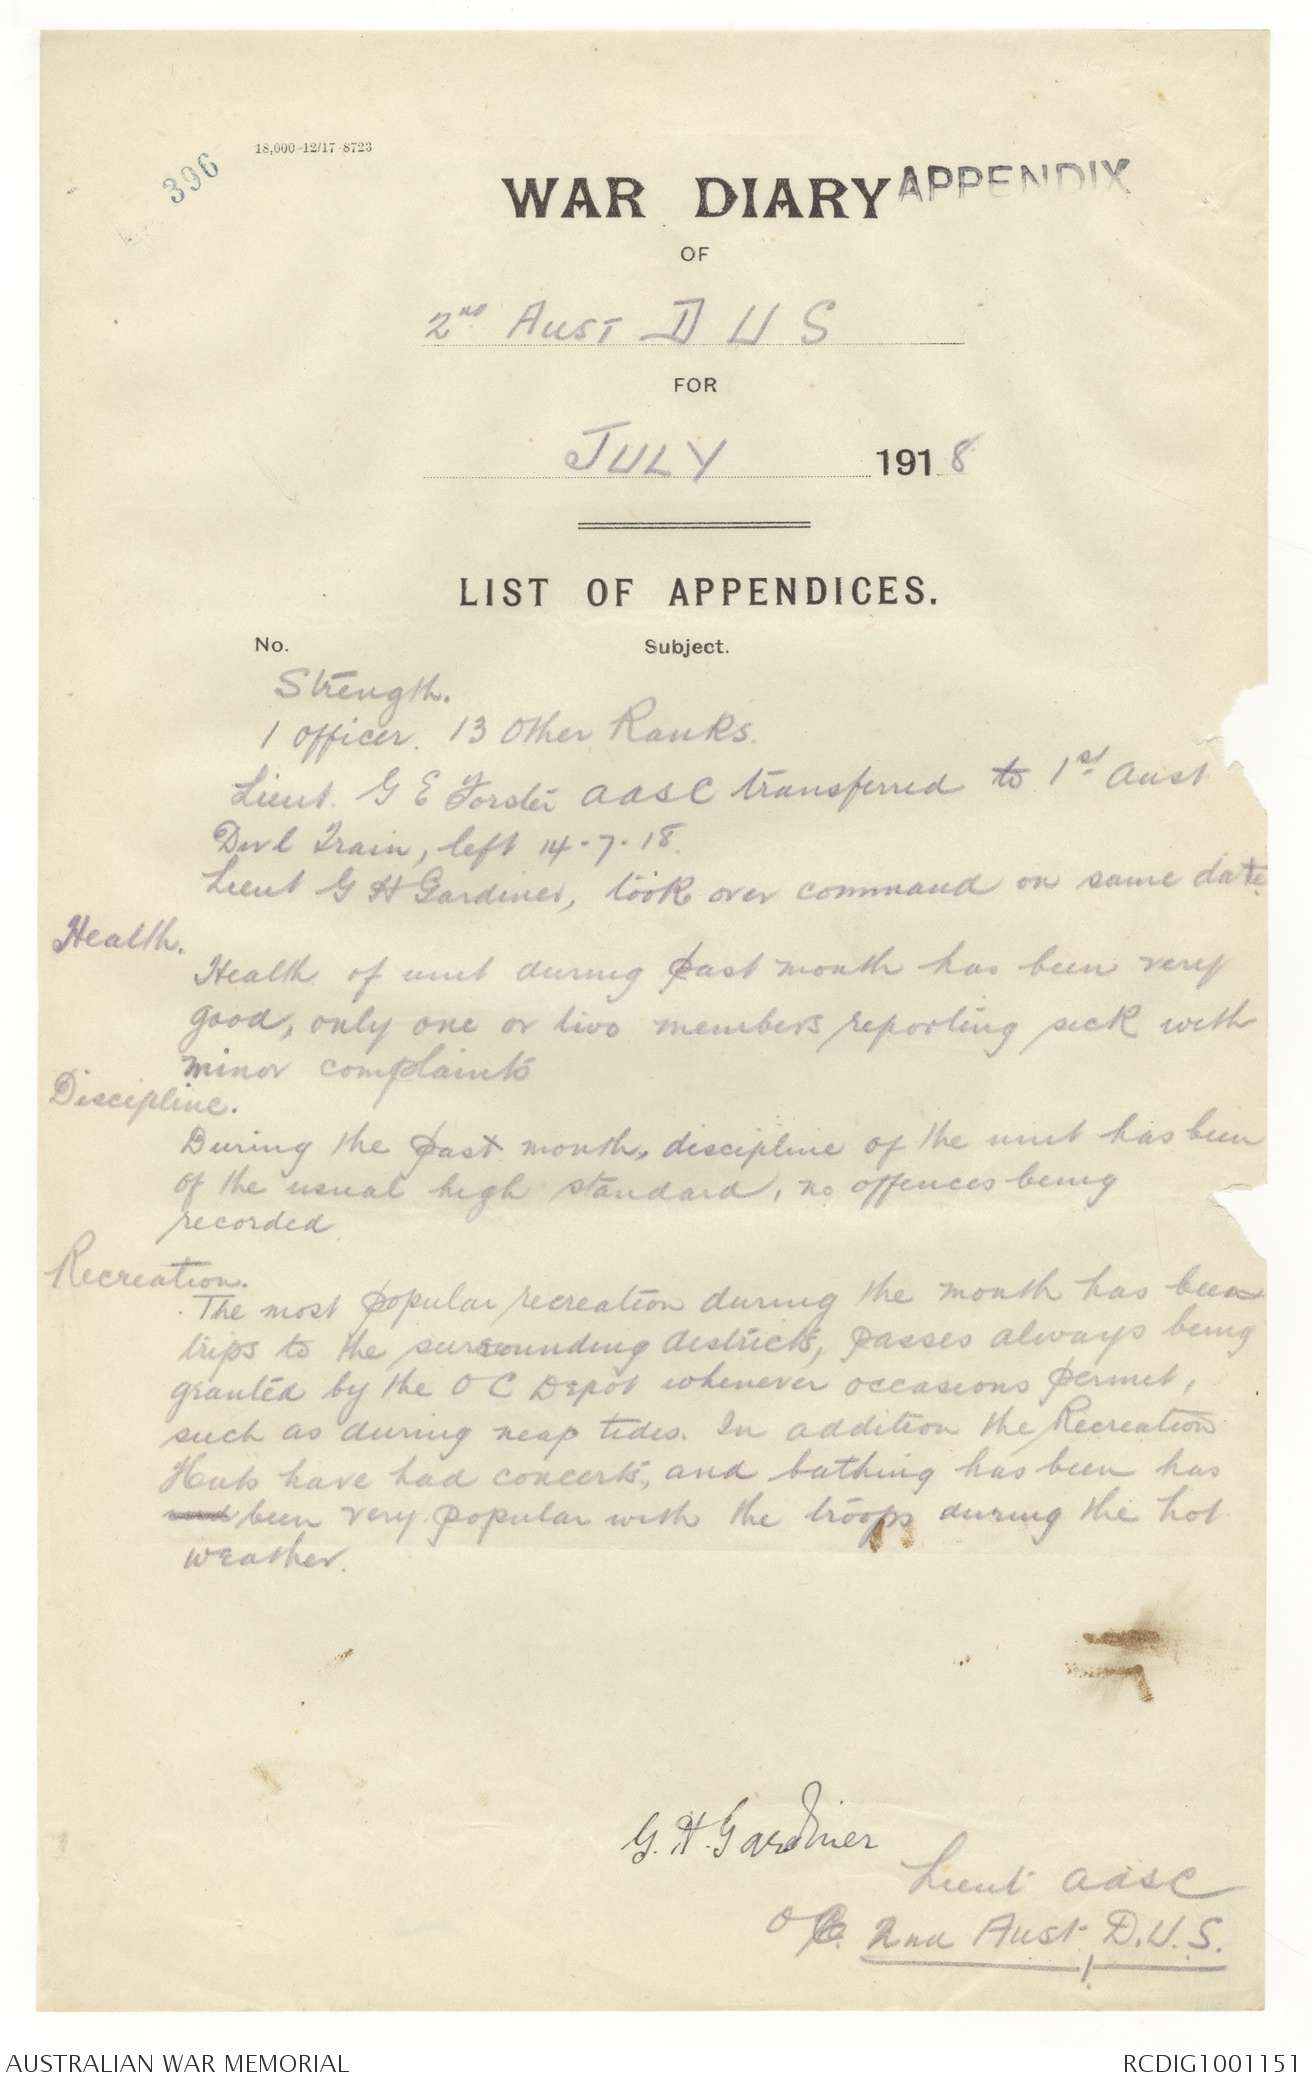 396
18,000-12/17-8723
WAR DIARY APPENDIX
OF
2nd Aust D U S
FOR
JULY 1918
LIST OF APPENDICES.
No. Subject.
Strength.
1 officer. 13 Other Ranks.
Lieut. G E Forster AASC transferred to 1st Aust
Divl Train, left 14-7-18.
Lieut G H Gardiner, took over command on same date.
Health.
Health of unit during past month has been very
good, only one or two members reporting sick with
minor complaints
Discipline.
During the past month, discipline of the unit has been
of the usual high standard, no offences being
recorded.
Recreation.
The most popular recreation during the month has been
trips to the surrounding districts, passes always being
granted by the O C Depot whenever occasions permit,
such as during neap tides. In addition the Recreation
Huts have had concerts, and bathing has been has
been very popular with the troops during the hot
weather.
G. H. Gardiner
Lieut AASC
O C. 2nd Aust. D.U.S.
AUSTRALIAN WAR MEMORIAL RCDIG1001151